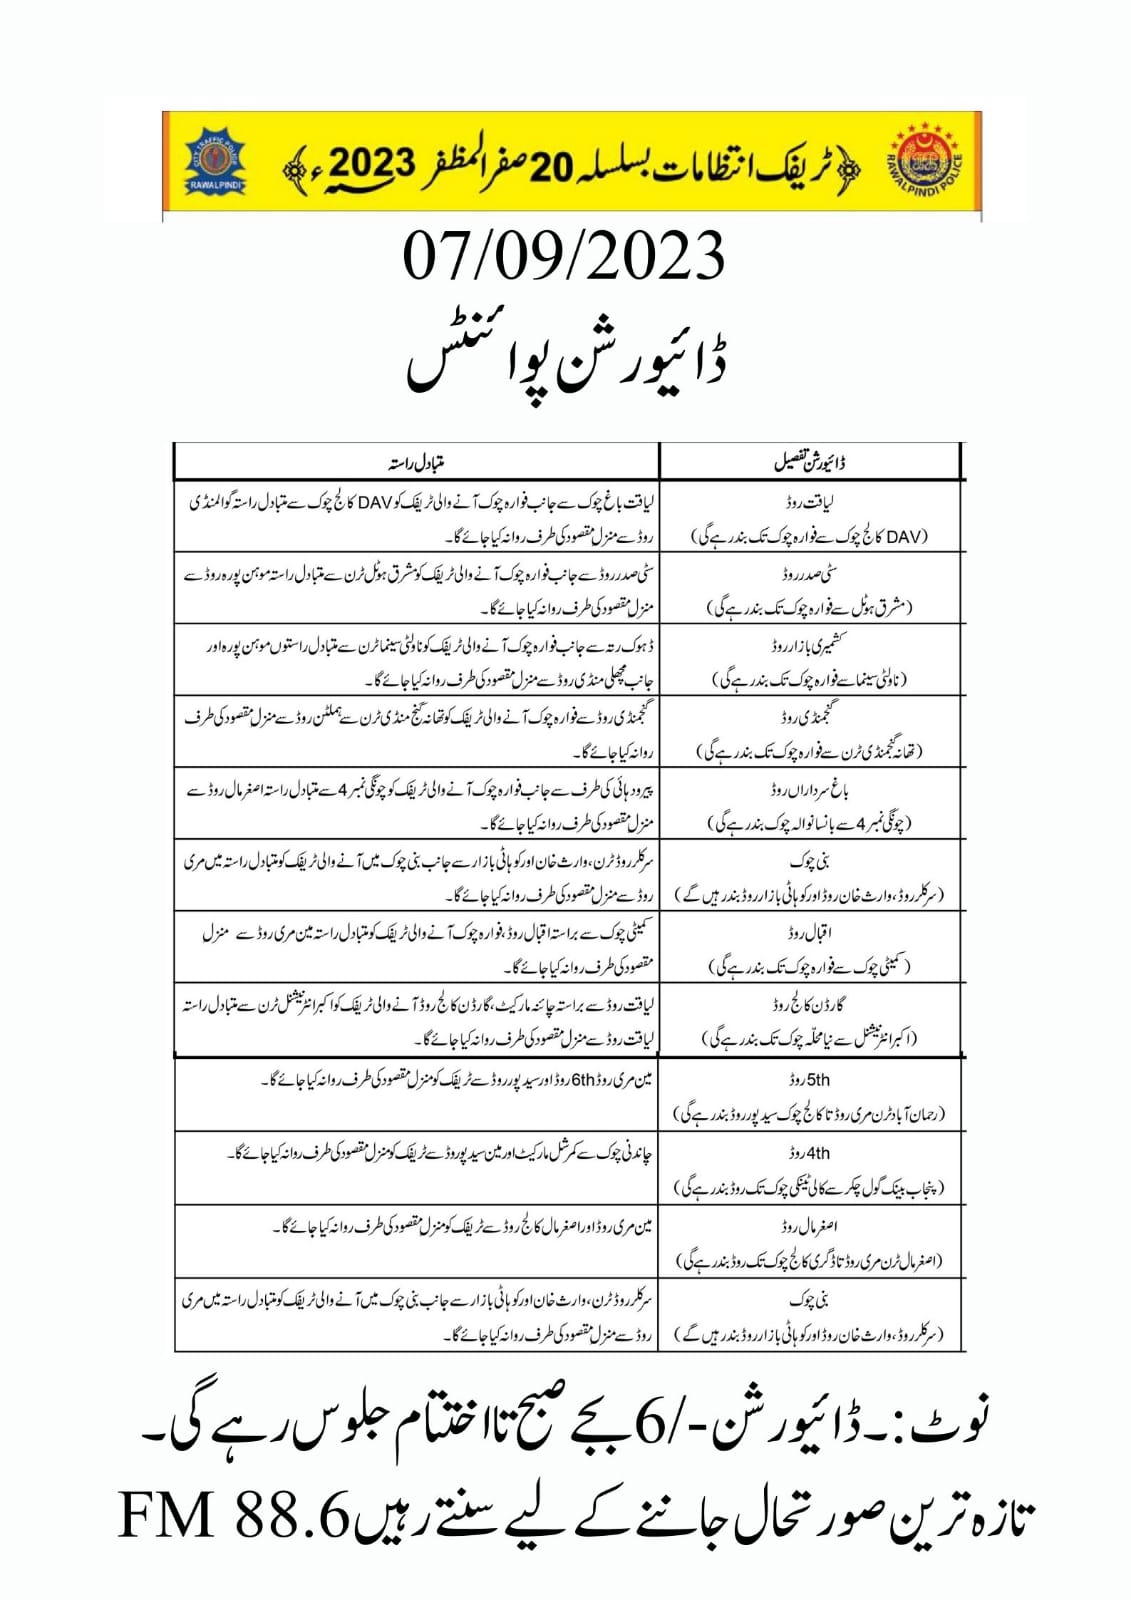 CITY TRAFFIC POLICE
RAWALPINDI
ٹریفک انتظامات بسلسلہ 20 صفر المظفر 2023ء
RAWALPINDI POLICE
07/09/2023
ڈائیورشن پوائنٹس
ڈائیورشن تفصیل
متبادل راستہ
لیاقت روڈ
(DAV کالج چوک سے فوارہ چوک تک بند رہے گی)
لیاقت باغ چوک سے جانب فوارہ چوک آنے والی ٹریفک کو DAV کالج چوک سے متبادل راستہ گوالمنڈی
روڈ سے منزل مقصود کی طرف روانہ کیا جائے گا۔
سٹی صدر روڈ
(مشرق ہوٹل سے فوارہ چوک تک بند رہے گی)
سٹی صدر روڈ سے جانب فوارہ چوک آنے والی ٹریفک کو مشرق ہوٹل ٹرن سے متبادل راستہ موہن پورہ روڈ سے
منزل مقصود کی طرف روانہ کیا جائے گا۔
کشمیری بازار روڈ
(ناولٹی سینما سے فوارہ چوک تک بند رہے گی)
ڈھوک رتہ سے جانب فوارہ چوک آنے والی ٹریفک کو ناولٹی سینما ٹرن سے متبادل راستوں موہن پورہ اور
جانب مچھلی منڈی روڈ سے منزل مقصود کی طرف روانہ کیا جائے گا۔
گنجمنڈی روڈ
(تھانہ گنجمنڈی ٹرن سے فوارہ چوک تک بند رہے گی)
گنجمنڈی روڈ سے فوارہ چوک آنے والی ٹریفک کو تھانہ گنج منڈی ٹرن سے ہملٹن روڈ سے منزل مقصود کی طرف
روانہ کیا جائے گا۔
باغ سرداراں روڈ
(چونگی نمبر 4 سے بانسانوالہ چوک بند رہے گی)
پیرودہائی کی طرف سے جانب فوارہ چوک آنے والی ٹریفک کو چونگی نمبر 4 سے متبادل راستہ اصغر مال روڈ سے
منزل مقصود کی طرف روانہ کیا جائے گا۔
بنی چوک
(سرکلر روڈ، وارث خان روڈ اور کوہاٹی بازار روڈ بند رہیں گے)
سرکلر روڈ ٹرن، وارث خان اور کوہاٹی بازار سے جانب بنی چوک میں آنے والی ٹریفک کو متبادل راستہ مین مری
روڈ سے منزل مقصود کی طرف روانہ کیا جائے گا۔
اقبال روڈ
(کمیٹی چوک سے فوارہ چوک تک بند رہے گی)
کمیٹی چوک سے براستہ اقبال روڈ، فوارہ چوک آنے والی ٹریفک کو متبادل راستہ مین مری روڈ سے منزل
مقصود کی طرف روانہ کیا جائے گا۔
گارڈن کالج روڈ
(اکبر انٹرنیشنل سے نیا محلّہ چوک تک بند رہے گی)
لیاقت روڈ سے براستہ چائنہ مارکیٹ، گارڈن کالج روڈ آنے والی ٹریفک کو اکبر انٹرنیشنل ٹرن سے متبادل راستہ
لیاقت روڈ سے منزل مقصود کی طرف روانہ کیا جائے گا۔
5th روڈ
(رحمان آباد ٹرن مری روڈ تا کالج چوک سید پور روڈ بند رہے گی)
مین مری روڈ 6th روڈ اور سید پور روڈ سے ٹریفک کو منزل مقصود کی طرف روانہ کیا جائے گا۔
4th روڈ
(پنجاب بینک گول چکر سے کالی ٹینکی چوک تک روڈ بند رہے گی)
چاندنی چوک سے کمرشل مارکیٹ اور مین سید پور روڈ سے ٹریفک کو منزل مقصود کی طرف روانہ کیا جائے گا۔
اصغر مال روڈ
(اصغر مال ٹرن مری روڈ تا ڈگری کالج چوک تک روڈ بند رہے گی)
مین مری روڈ اور اصغر مال کالج روڈ سے ٹریفک کو منزل مقصود کی طرف روانہ کیا جائے گا۔
بنی چوک
(سرکلر روڈ، وارث خان روڈ اور کوہاٹی بازار روڈ بند رہیں گے)
سرکلر روڈ ٹرن، وارث خان اور کوہاٹی بازار سے جانب بنی چوک میں آنے والی ٹریفک کو متبادل راستہ مین مری
روڈ سے منزل مقصود کی طرف روانہ کیا جائے گا۔
نوٹ:۔ ڈائیورشن -/6 بجے صبح تا اختتام جلوس رہے گی۔
تازہ ترین صورتحال جاننے کے لیے سنتے رہیں FM 88.6